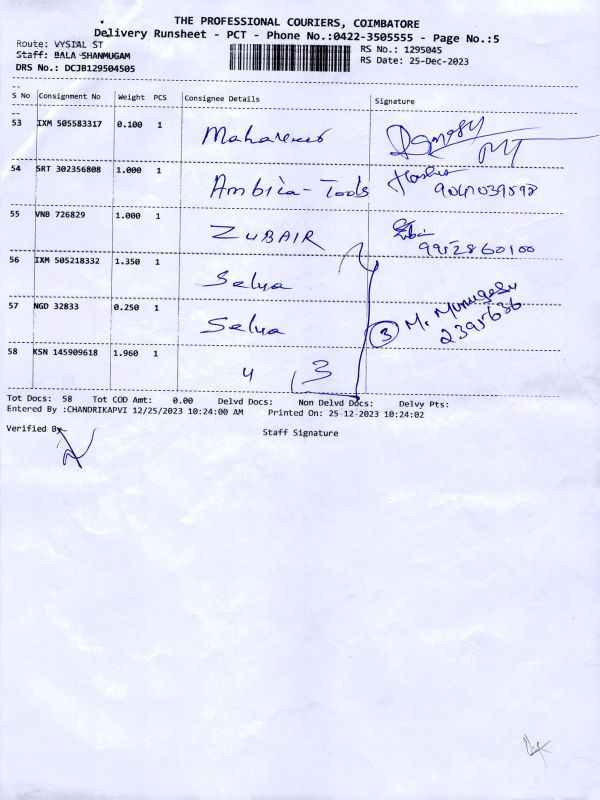 THE PROFESSIONAL COURIERS, COIMBATORE
Delivery Runsheet - PCT - Phone No.:0422-3505555 - Page No.:5
Route: VYSIAL ST
RS No.: 1295045
Staff: BALA SHANMUGAM
RS Date: 25-Dec-2023
DRS No.: DCJB129504505
S No Consignment No Weight PCS Consignee Details Signature
53 IXM 505583317 0.100 1
54 SRT 302356808 1.000 1 Ambica - Tools
55 VNB 726829 1.000 1 ZUBAIR
9952860100
56 IXM 505218332 1.350 1 Selva
57 NGD 32833 0.250 1 Selva 3 M. Murugesu
2395636
58 KSN 145909618 1.960 1 4 3
Tot Docs: 58 Tot COD Amt: 0.00 Delvd Docs: Non Delvd Docs: Delvy Pts:
Entered By :CHANDRIKAPVI 12/25/2023 10:24:00 AM Printed On: 25-12-2023 10:24:02
Verified By
Staff Signature